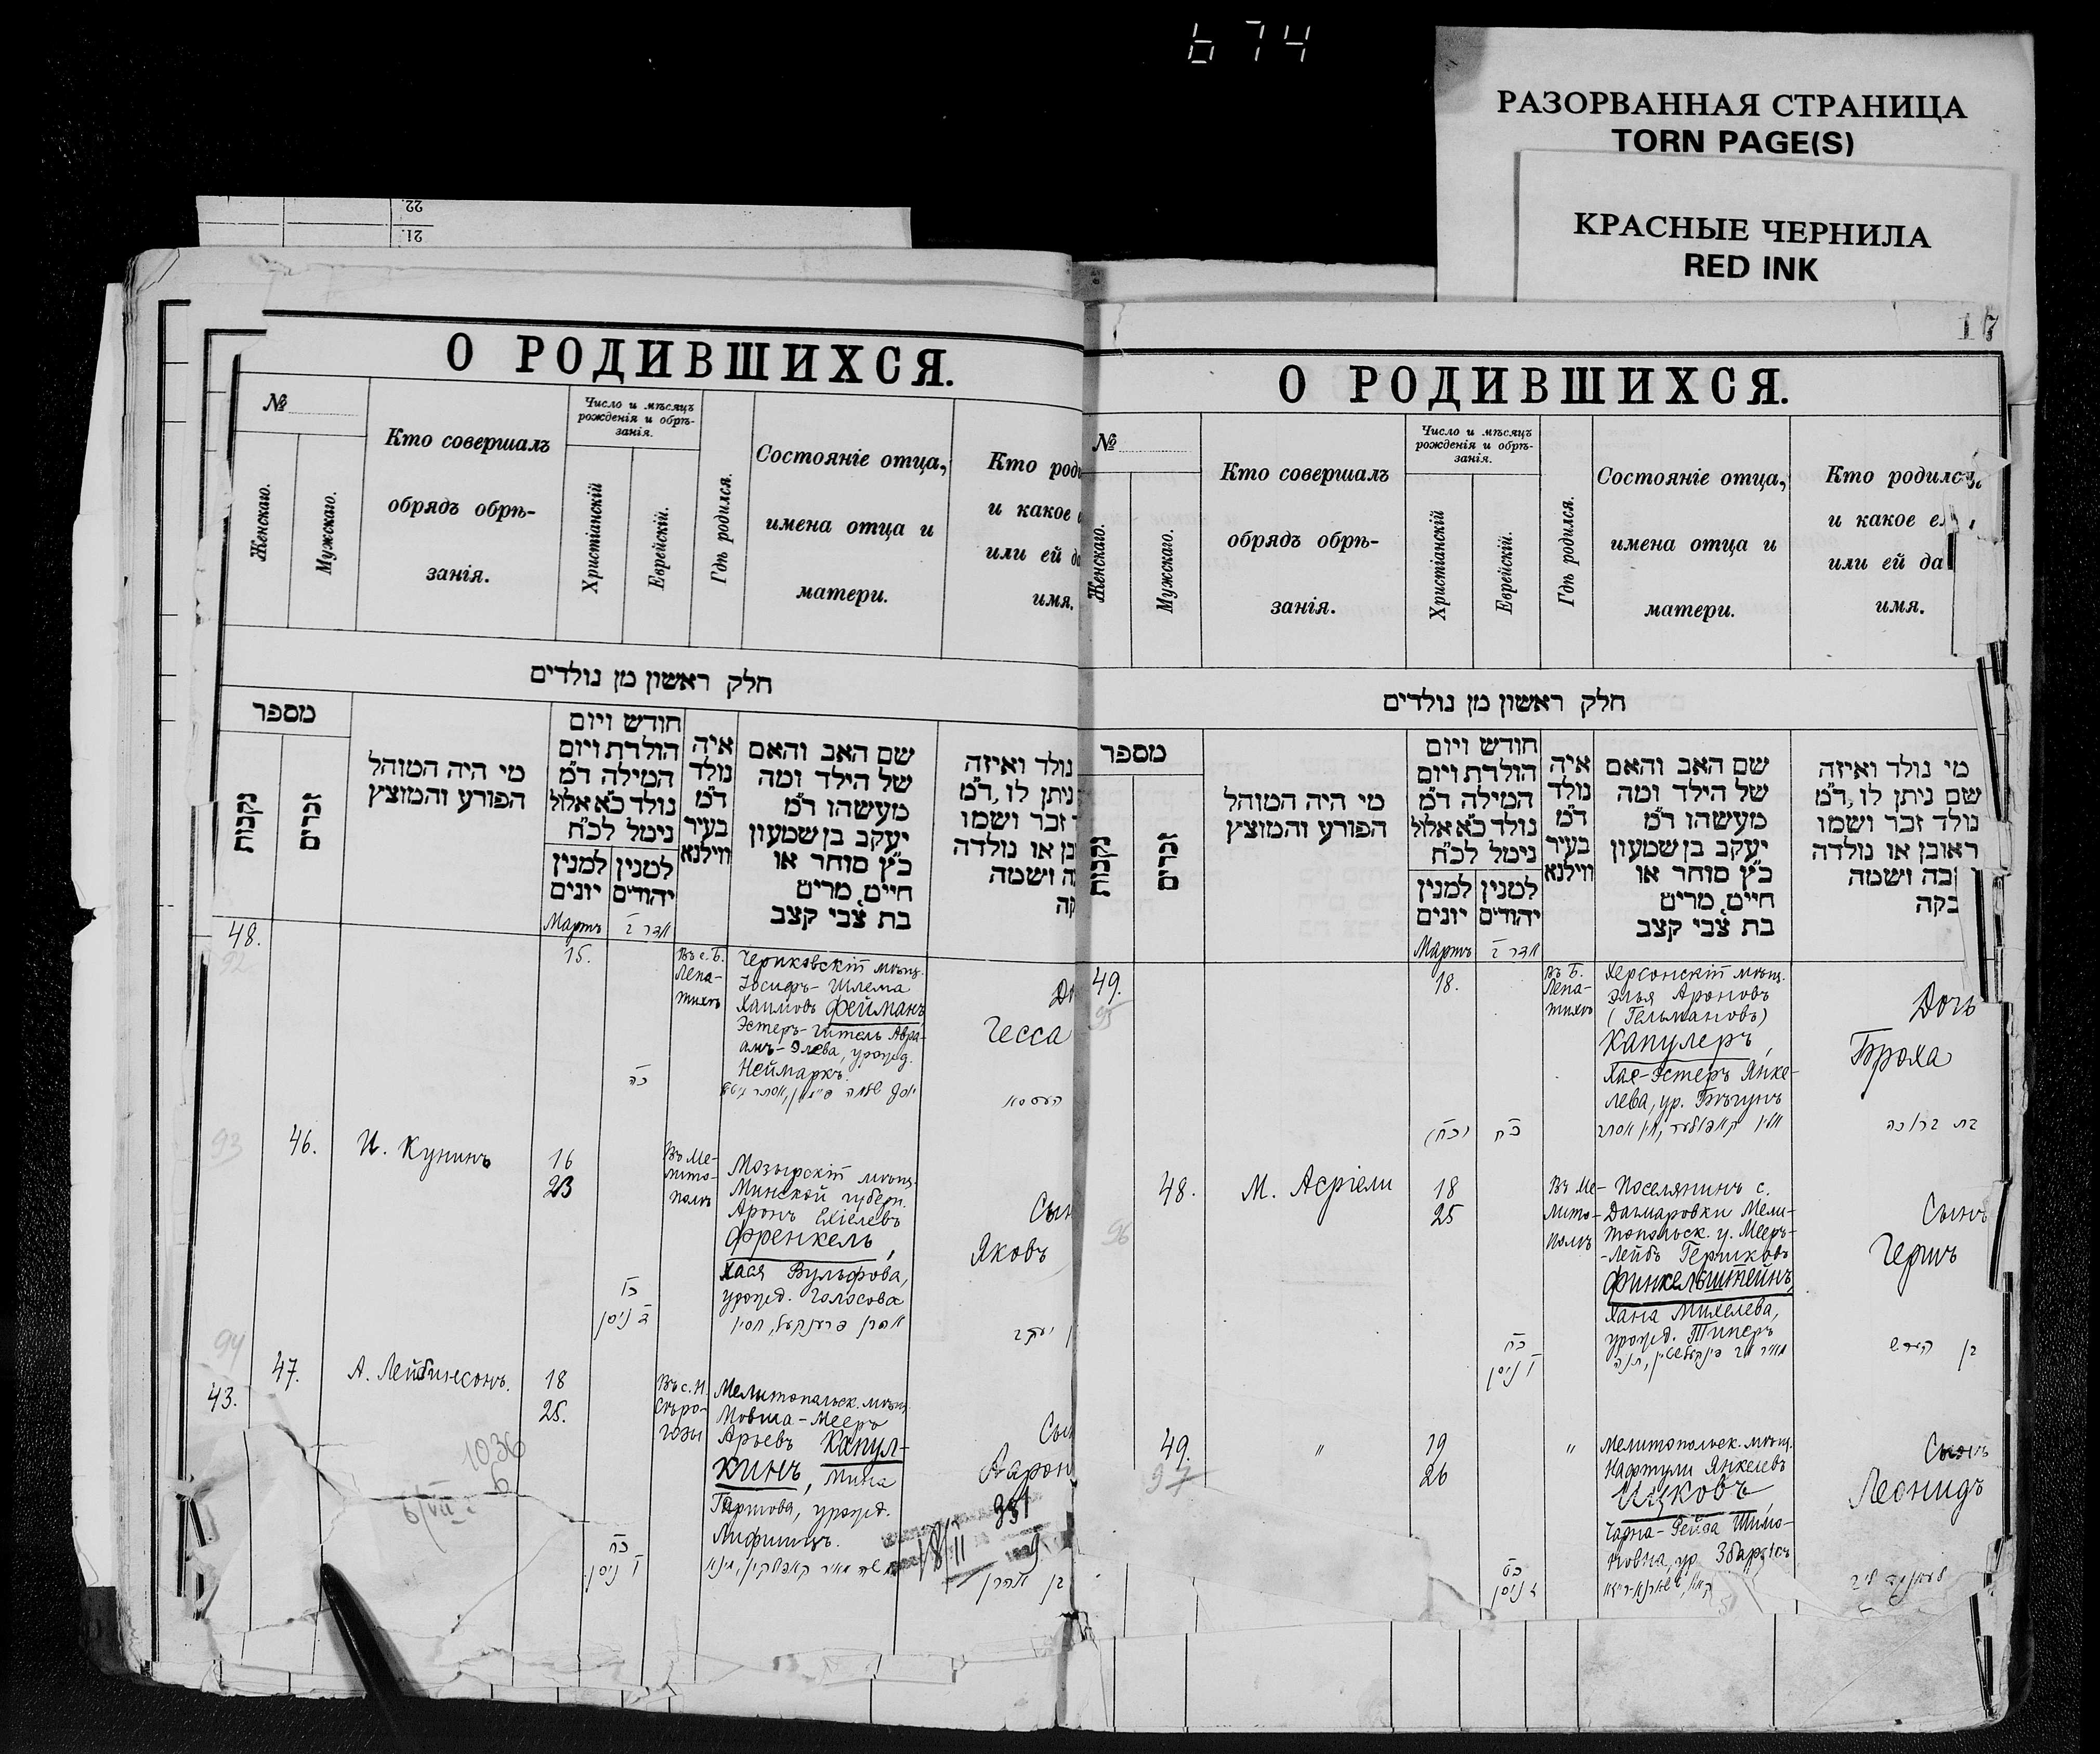 674
РАЗОРВАННАЯ СТРАНИЦА
TORN PAGE(S)
КРАСНЫЕ ЧЕРНИЛА
RED INK
22.
21.
О РОДИВШИХСЯ.
№
Женскаго.
Мужскаго.
Кто совершалъ
обрядъ обрѣ-
занія.
Число и мѣсяцъ
рожденія и обрѣ-
занія.
Христіанскій
Еврейскій.
Гдѣ родился.
Состояніе отца,
имена отца и
матери.
Кто роди
и какое
или ей да
имя.
חלק ראשון מן נולדים
מספר
נקבות
זכרים
מי היה המוהל
הפורע והמוצץ
חודש ויום
הולדת ויום
המילה ד״מ
נולד כ״א אלול
נימל לכ״ח
למנין
יונים
למנין
יהודים
איה
נולד
ד״מ
בעיר
ווילנא
שם האב והאם
של הילד ומה
מעשהו ד״מ
יעקב בן שמעון
כ״ץ סוחר או
חיים, מרים
בת צבי קצב
נולד ואיזה
ניתן לו, ד״מ
זכר ושמו
בן או נולדה
ה ושמה
קה
Мартъ
אדר ב
48.
92
15.
Въ с. Б.
Лепа-
тихѣ
Чериковскій мѣщ.
Іосифъ-Шлема
Хаимовъ Фейманъ
Эстеръ-Гитель Авра-
амъ-Элева, урожд.
Неймаркъ.
До
Гесса
כה
93
46.
И. Кунинъ
16
23
Въ Ме-
лито-
полѣ
Мозырскій мѣщ.
Минской губерн.
Аронъ Ехіелевъ
Френкель,
Хася Вульфова,
урожд. Голосова
Сын
Яковъ
ב ניסן
אהרן פרענקעל, חסיא
יעקב
94
47.
43.
А. Лейбинсонъ.
18
25.
Въ с. Н.
Сѣро-
гозы
Мелитопольск. мѣщ.
Мовша-Мееръ
Арьевъ Капул-
кинъ, Мина
урожд.
Лифшицъ.
Сын
Аарон
כח
ניסן
בן אהרן
1036
6/VII
6
351
18/II
9
17
О РОДИВШИХСЯ.
№
Женскаго.
Мужскаго.
Кто совершалъ
обрядъ обрѣ-
занія.
Число и мѣсяцъ
рожденія и обрѣ-
занія.
Христіанскій
Еврейскій.
Гдѣ родился.
Состояніе отца,
имена отца и
матери.
Кто родился,
и какое е
или ей да
имя.
חלק ראשון מן נולדים
מספר
נקבות
זכרים
מי היה המוהל
הפורע והמוצץ
חודש ויום
הולדת ויום
המילה ד״מ
נולד כ״א אלול
נימל לכ״ח
למנין
יונים
למנין
יהודים
איה
נולד
ד״מ
בעיר
ווילנא
שם האב והאם
של הילד ומה
מעשהו ד״מ
יעקב בן שמעון
כ״ץ סוחר או
חיים, מרים
בת צבי קצב
מי נולד ואיזה
שם ניתן לו, ד״מ
נולד זכר ושמו
ראובן או נולדה
בה ושמה
בקה
Мартъ
אדר ב
49.
95
18.
Въ Б.
Лепа-
тихѣ
Херсонскій мѣщ.
Элья Ароновъ
(Гельмановъ)
Капулеръ,
Хая-Эстеръ Янке-
лева, ур. Бѣгунъ
Дочь
Броха
(כח)
כח
בת ברוכה
48.
96
М. Асріели
18
25
Въ Ме-
лито-
полѣ
Поселянинъ с.
Дагмаровки Мели-
топольск. у. Мееръ-
-Лейбъ Гершковъ
Финкельштейнъ,
Хана Михелева,
урожд. Типеръ
Сынъ
Гершъ
כח
ניסן
בן הערש
49.
97
"
19
26
"
Мелитопольск. мѣщ.
Нафтули Янкелевъ
Ицковъ,
Чарна-Рейза Шимо-
новна, ур. Збарскъ
Сынъ
Леонидъ
כט
ניסן